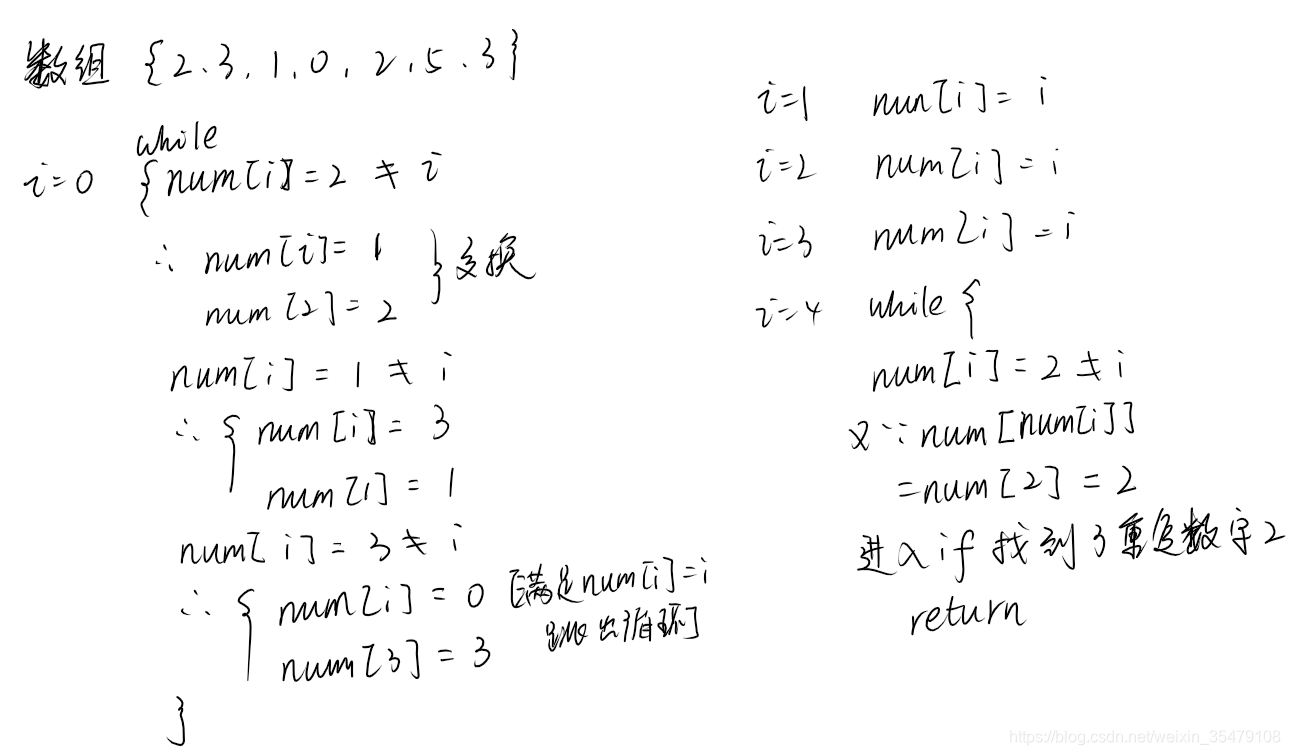 数组 {2、3,1,0,2,5、3}
while
i=0 {num[i]=2 ≠ i
∴ num[i]=1
num[2]=2
}交换
num[i]=1 ≠ i
∴ { num[i]=3
num[1]=1
num[i]=3 ≠ i
∴ { num[i]=0 [满足num[i]=i
num[3]=3 跳出循环]
}
i=1 num[i]=i
i=2 num[i]=i
i=3 num[i]=i
i=4 while {
num[i]=2 ≠ i
又∵ num[num[i]]
=num[2]=2
进入if 找到了重复数字2
return
https://blog.csdn.net/weixin_35479108